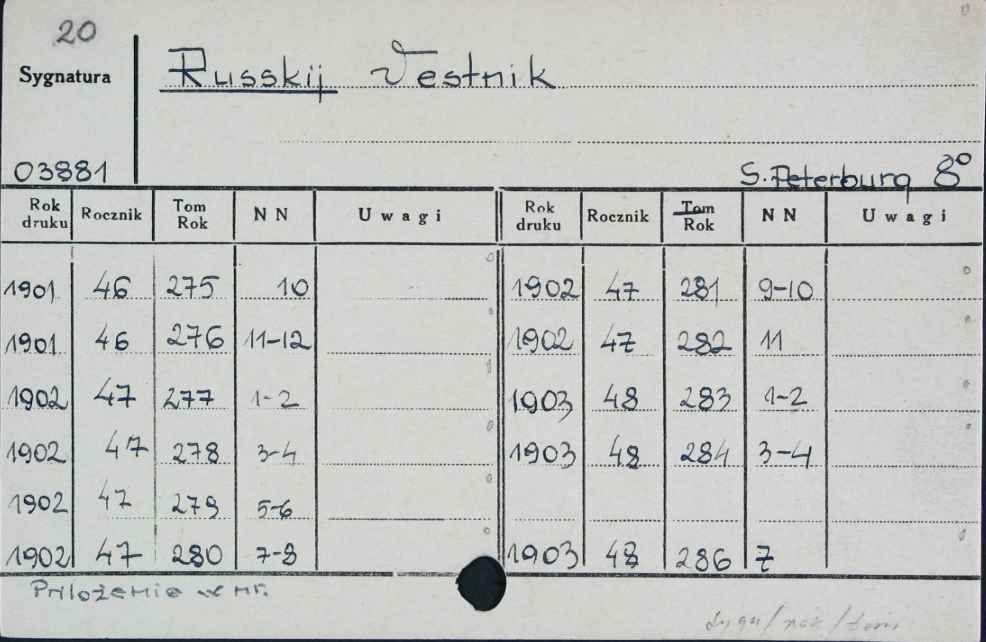 20
Sygnatura
Russkij Vestnik
03881
S. Peterburg 8°
Rok druku Rocznik Tom Rok NN Uwagi Rok druku Rocznik Tom Rok NN Uwagi
1901 46 275 10 1902 47 281 9-10
1901 46 276 11-12 1902 47 282 11
1902 47 277 1-2 1903 48 283 1-2
1902 47 278 3-4 1903 48 284 3-4
1902 47 279 5-6
1902 47 280 7-8 1903 48 286 7
Priloženie w nr.
sygn/rok/tom